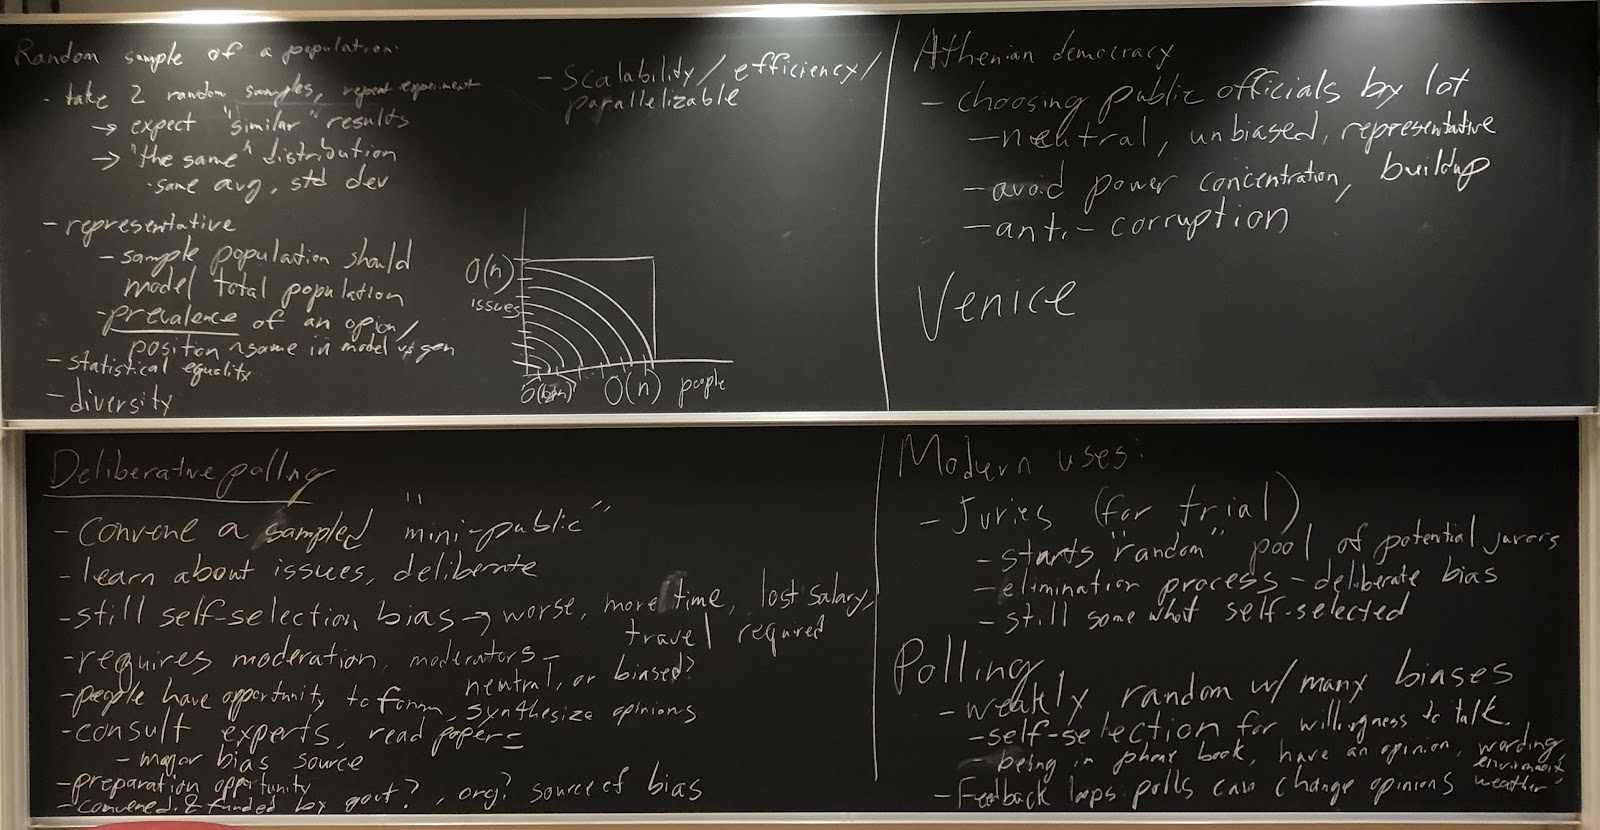 Random sample of a population:
- take 2 random samples, repeat experiment
→ expect "similar" results
→ "the same" distribution
· same avg, std dev
- representative
- sample population should
model total population
- prevalence of an opion/
position ~same in model vs gen
- statistical equality
- diversity
- Scalability/efficiency/
parallelizable
O(n)
issues
O(n) people
Athenian democracy
- choosing public officials by lot
- neutral, unbiased, representative
- avoid power concentration, buildup
- anti-corruption
Venice
Deliberative polling
- Convene a sampled "mini-public"
- learn about issues, deliberate
- still self-selection bias → worse, more time, lost salary,
travel required
- requires moderation, moderators -
neutral, or biased?
- people have opportunity to form, synthesize opinions
- consult experts, read papers
- major bias source
- preparation opportunity
- convened & funded by govt?, org? source of bias
Modern uses:
- Juries (for trial)
- starts "random" pool of potential jurors
- elimination process - deliberate bias
- still some what self-selected
Polling
- weakly random w/ many biases
- self-selection for willingness to talk.
- being in phone book, have an opinion, wording
environment
weather
- Feedback loops: polls can change opinions